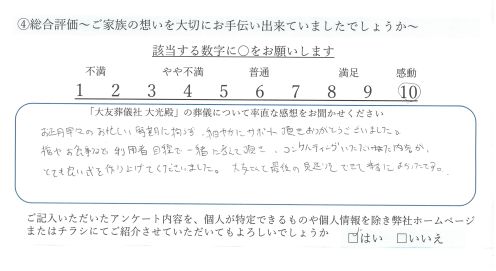 ④総合評価～ご家族の想いを大切にお手伝い出来ていましたでしょうか～
該当する数字に○をお願いします
不満 やや不満 普通 満足 感動
1 2 3 4 5 6 7 8 9 10
「大友葬儀社 大光殿」の葬儀について率直な感想をお聞かせください
お正月早々のお忙しい時期に拘らず、細やかにサポート頂きありがとうございました。
利用者目線で一緒に考えて頂き、コンサルティングいただいた内容が、
とても良い式を作り上げてくださいました。 最後の見送りができて本当によかったです。
ご記入いただいたアンケート内容を、個人が特定できるものや個人情報を除き弊社ホームページ
またはチラシにてご紹介させていただいてもよろしいでしょうか □はい □いいえ